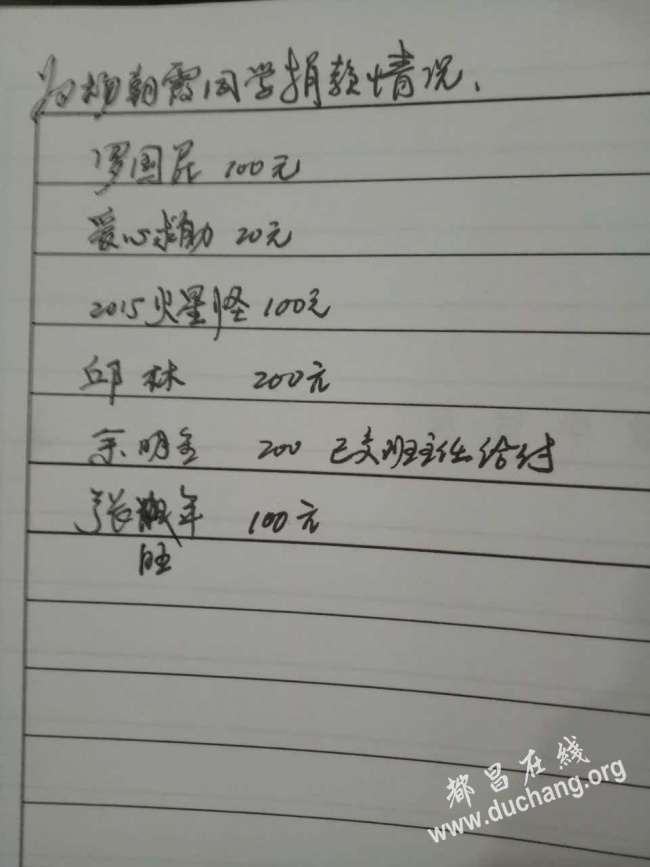 为杨朝霞同学捐款情况、
罗国昆 100元
爱心求助 20元
2015火星怪 100元
邱林 200元
余明金 200 已交班主任给付
张年 100元
旺
都昌在线
www.duchang.org